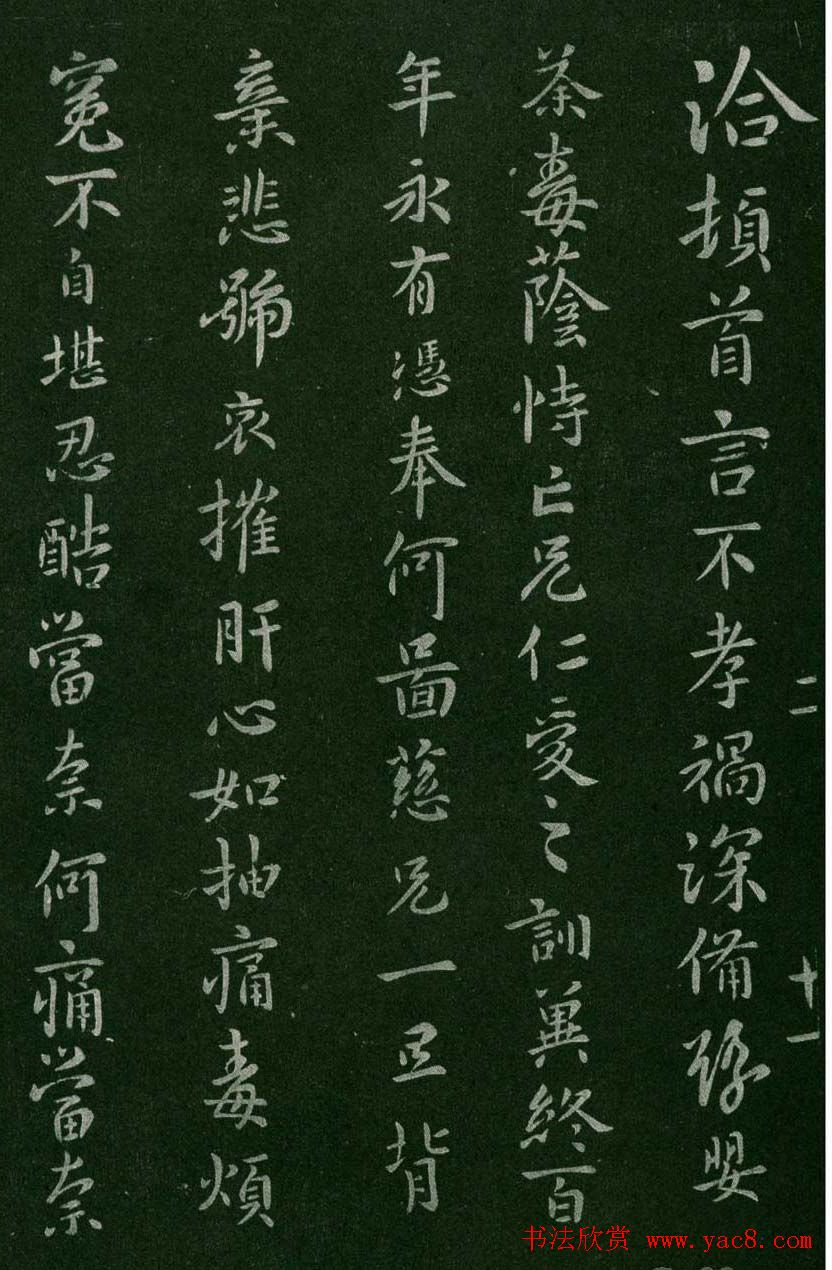 洽頓首言不孝禍深備豫嬰
荼毒蔭恃亡兄仁愛之訓冀終百
年永有憑奉何啚慈兄一旦背
棄悲號哀摧肝心如抽痛毒煩
冤不自堪忍酷當奈何痛當奈
二
十一
书法欣赏 www.yac8.com